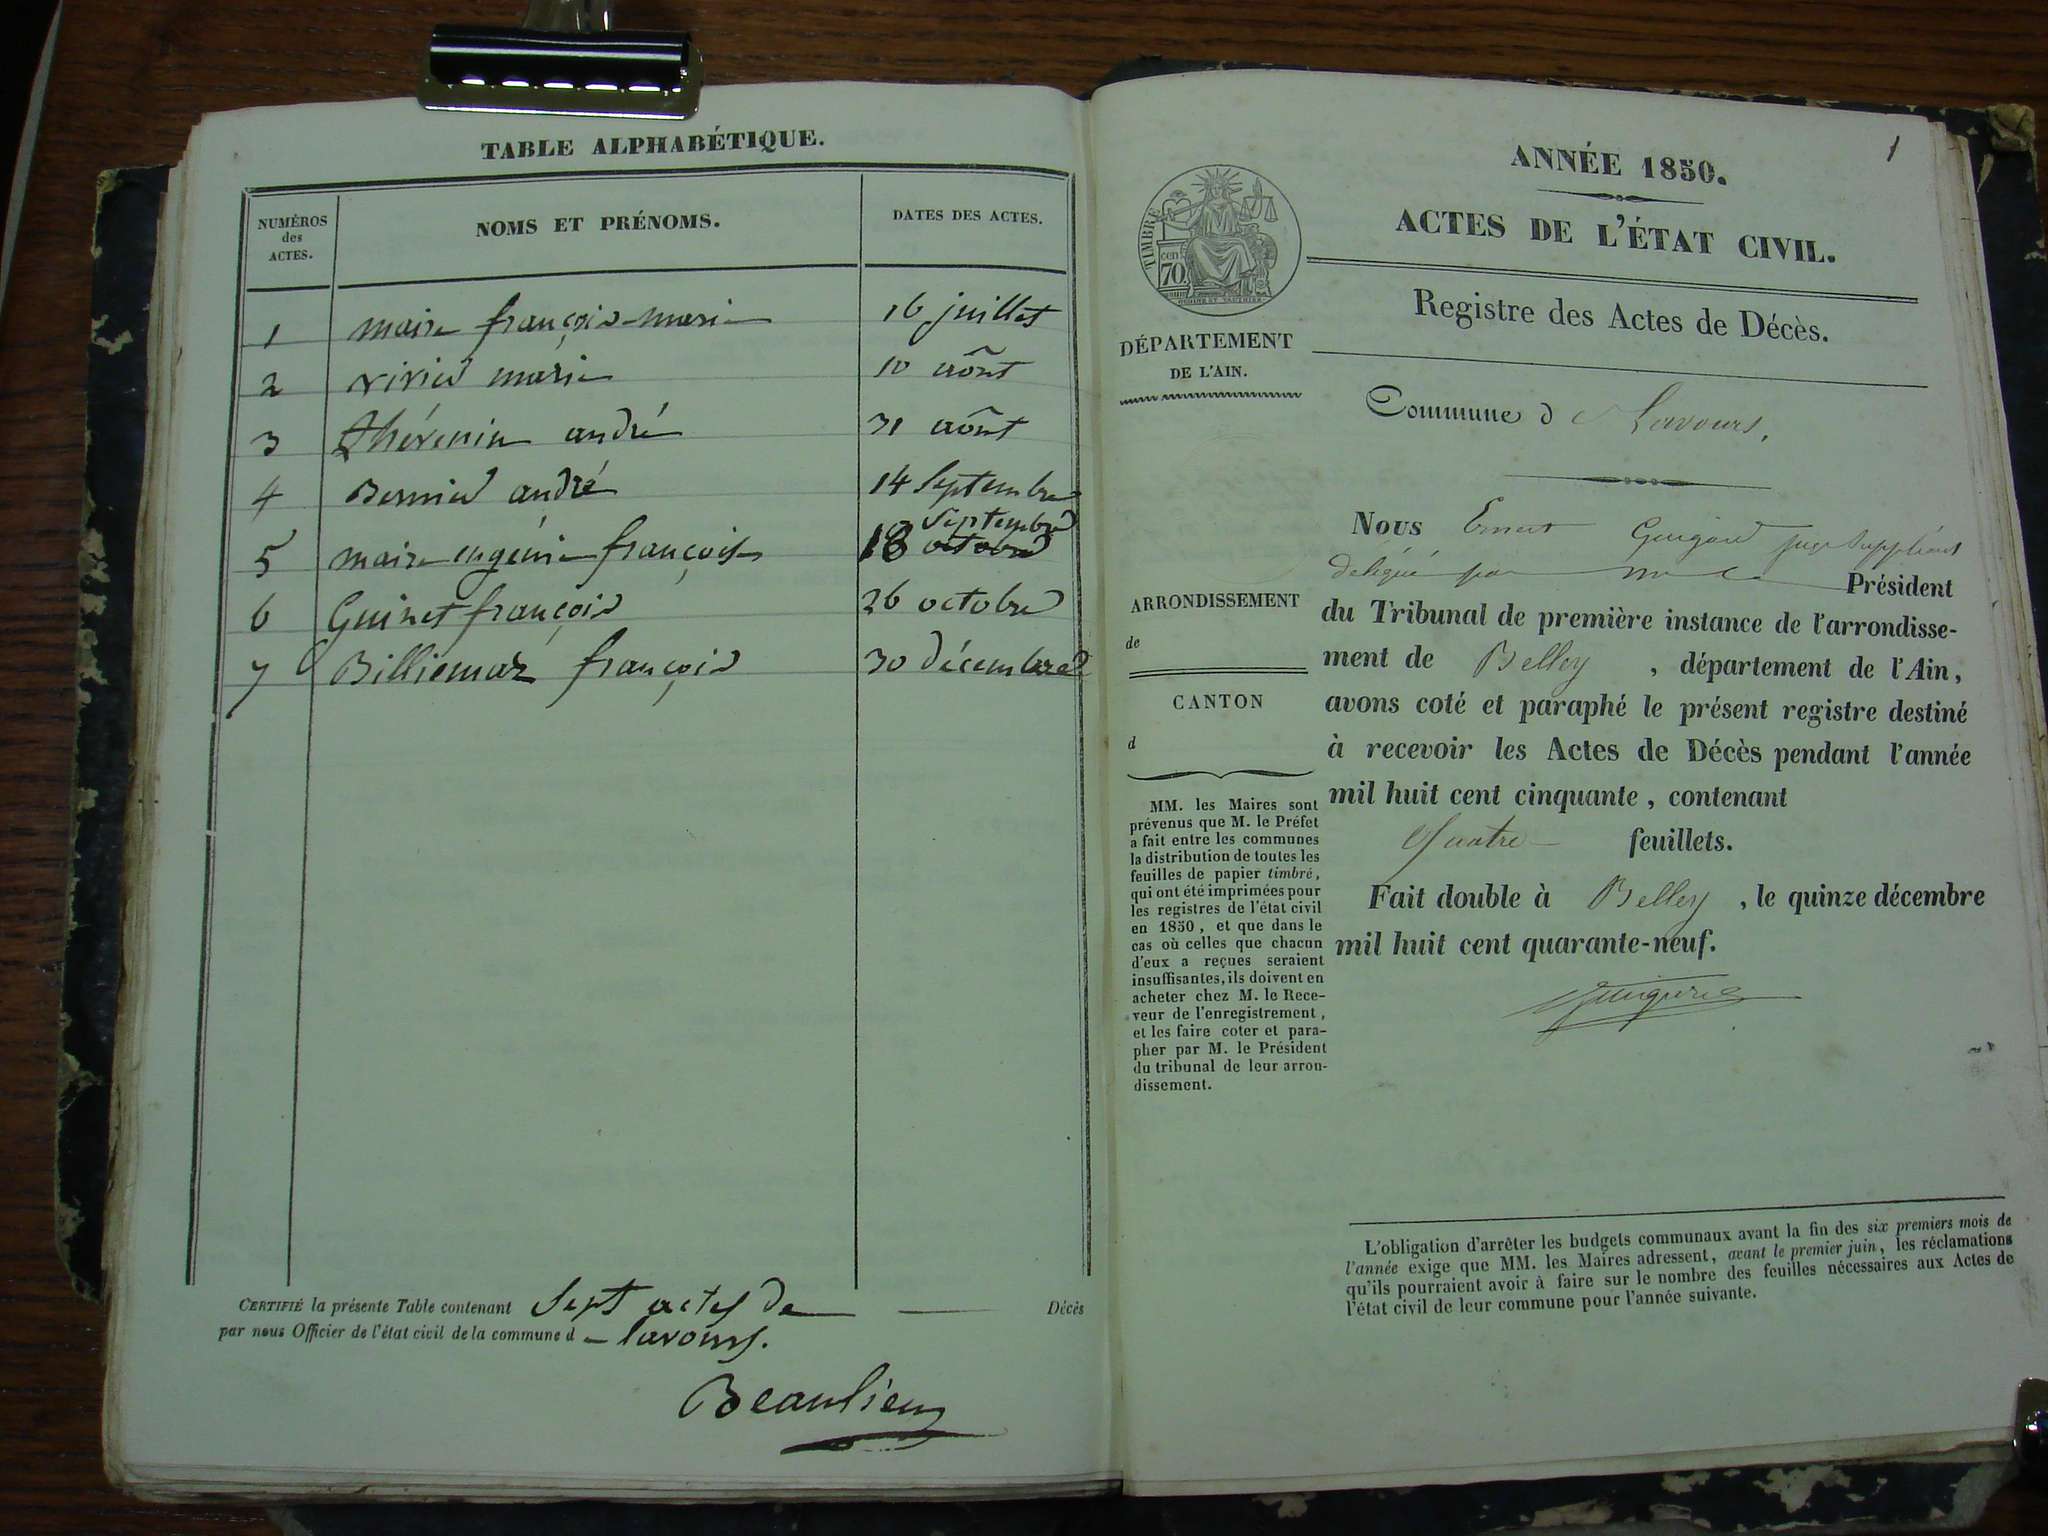 TABLE ALPHABÉTIQUE.
NUMÉROS
des
ACTES.
NOMS ET PRÉNOMS.
DATES DES ACTES.
1 maire françois-marie 16 juillet
2 marie 10 aôut
3 thévenin andré 31 aôut
4 Bernier andré 14 Septembre
Septembre
5 maire eugénie françoise 18 octobre
6 Guinet françois 26 octobre
7 Billiemaz françois 30 décembre
CERTIFIÉ la présente Table contenant Sept actes de Décès
par nous Officier de l'état civil de la commune d lavours.
Beaulieu
1
ANNÉE 1850.
ACTES DE L'ÉTAT CIVIL.
Registre des Actes de Décès.
TIMBRE
cen
70
DÉPARTEMENT
DE L'AIN.
Commune d e Lavours.
Nous Ernest juge Suppléant
délégué par Président
du Tribunal de première instance de l'arrondisse-
ment de Belley, département de l'Ain,
avons coté et paraphé le présent registre destiné
à recevoir les Actes de Décès pendant l'année
mil huit cent cinquante, contenant
Quatre feuillets.
Fait double à Belley, le quinze décembre
mil huit cent quarante-neuf.
ARRONDISSEMENT
de
CANTON
d
MM. les Maires sont
prévenus que M. le Préfet
a fait entre les communes
la distribution de toutes les
feuilles de papier timbré,
qui ont été imprimées pour
les registres de l'état civil
en 1850, et que dans le
cas où celles que chacun
d'eux a reçues seraient
insuffisantes, ils doivent en
acheter chez M. le Rece-
veur de l'enregistrement,
et les faire coter et para-
pher par M. le Président
du tribunal de leur arron-
dissement.
L'obligation d'arrêter les budgets communaux avant la fin des six premiers mois de
l'année exige que MM. les Maires adressent, avant le premier juin, les réclamations
qu'ils pourraient avoir à faire sur le nombre des feuilles nécessaires aux Actes de
l'état civil de leur commune pour l'année suivante.